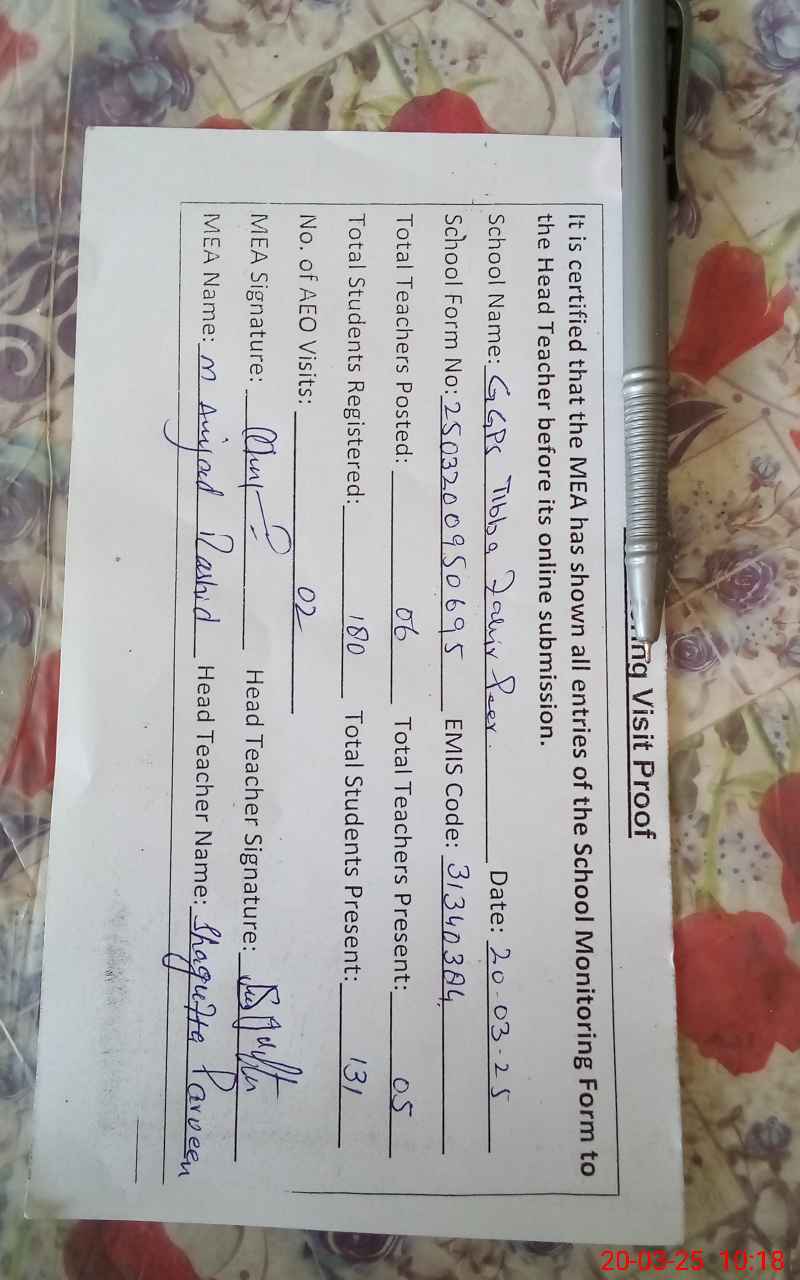 ing Visit Proof
It is certified that the MEA has shown all entries of the School Monitoring Form to
the Head Teacher before its online submission.
School Name: GGPS Tibba Zahir Peer. Date: 20-03-25
School Form No: 2503200950695 EMIS Code: 31340384
Total Teachers Posted: 06 Total Teachers Present: 05
Total Students Registered: 180 Total Students Present: 131
No. of AEO Visits: 02
MEA Signature: Head Teacher Signature:
MEA Name: M Amjad Rashid Head Teacher Name: Shagufta Parveen
20-03-25 10:18